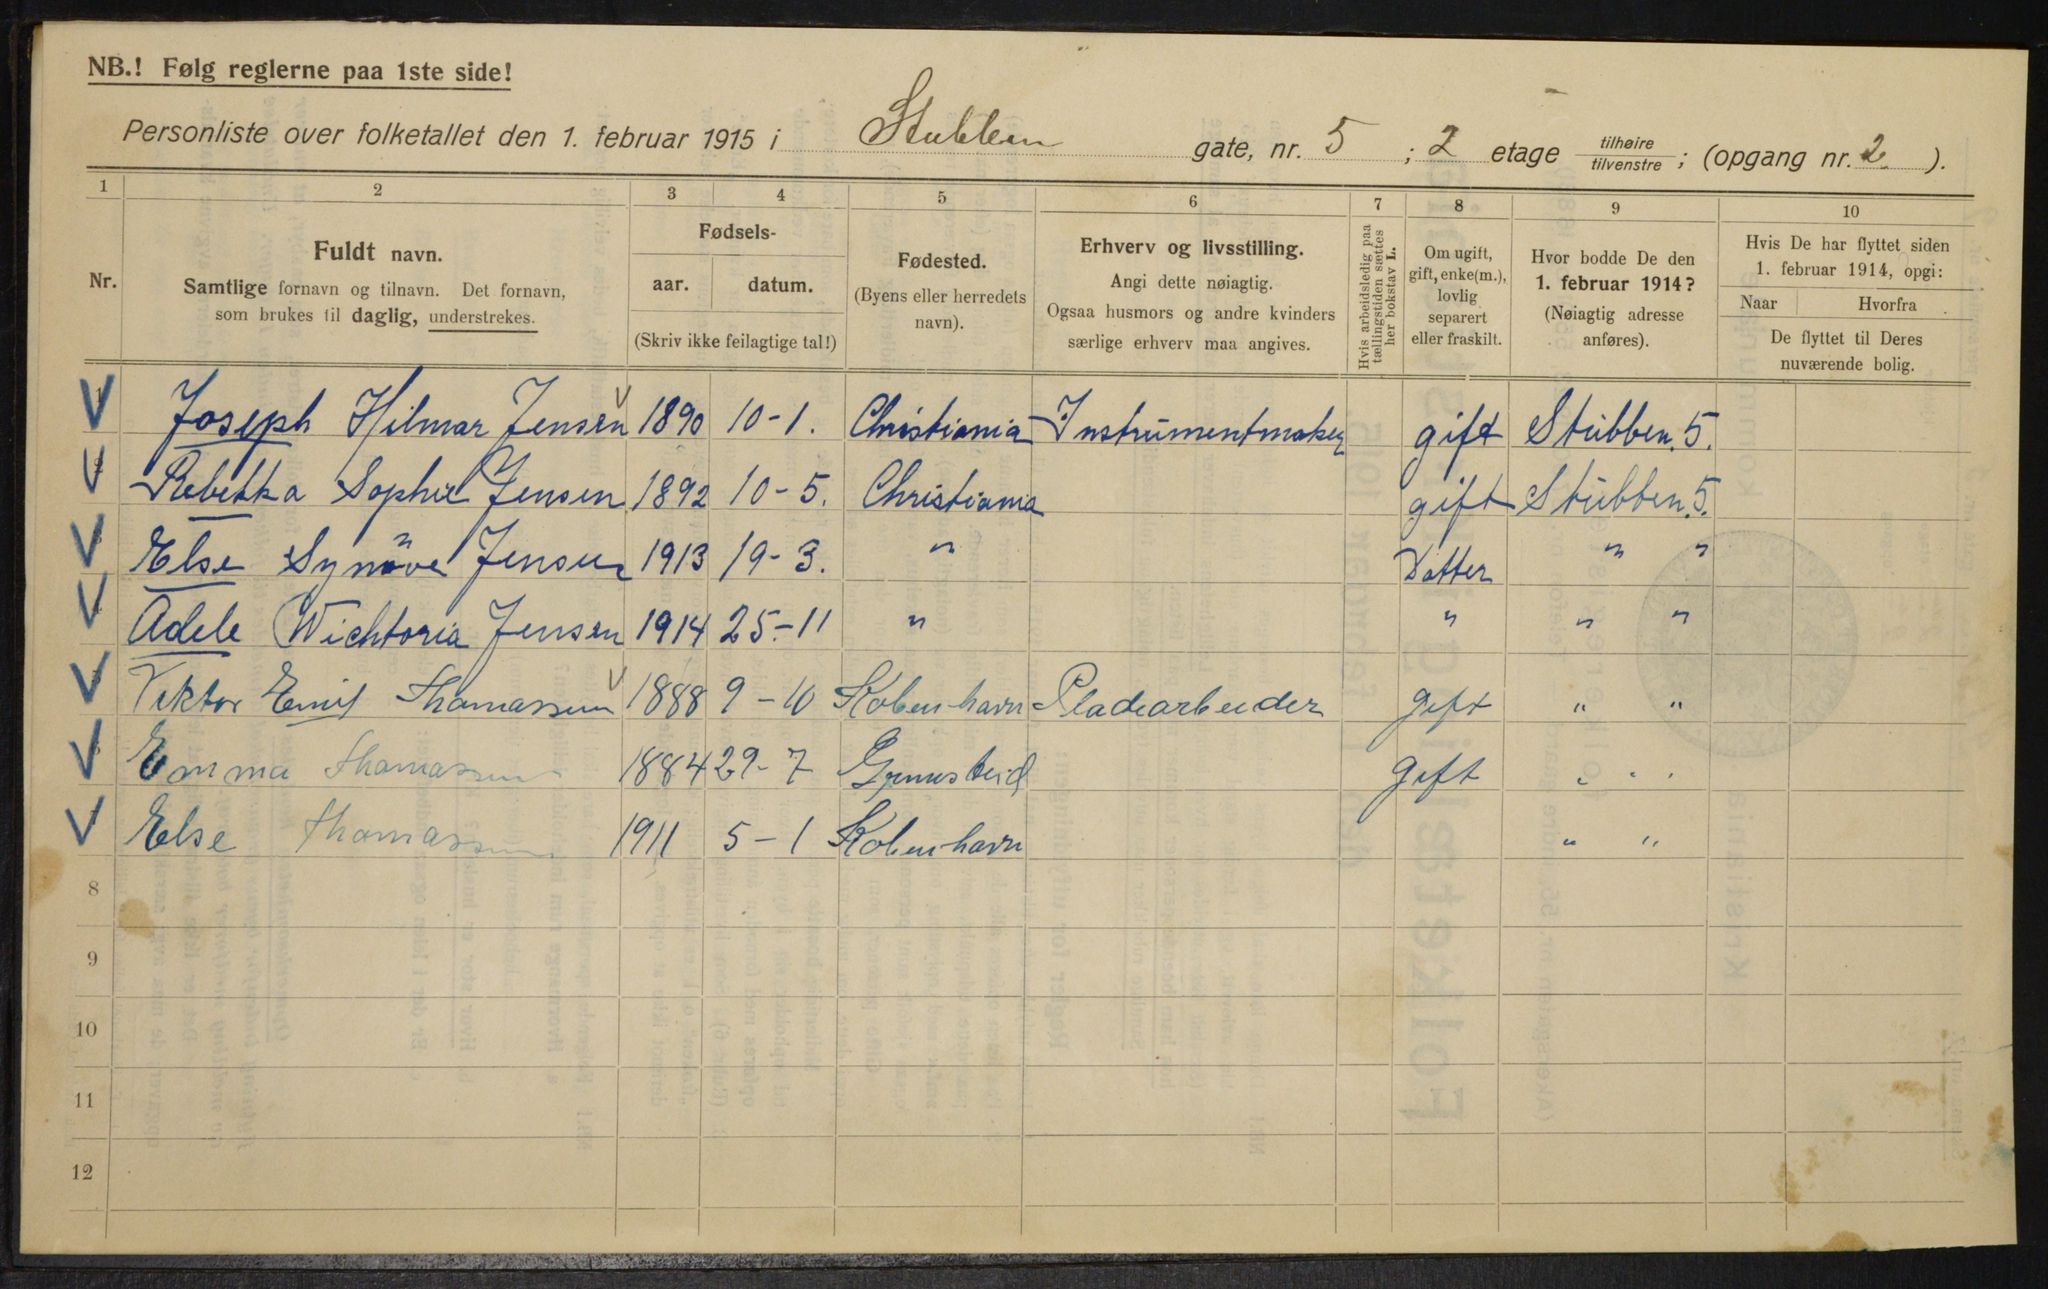 NB.! Følg reglerne paa 1ste side!
Personliste over folketallet den 1. februar 1915 i Stubben gate, nr. 5 ; 2 etage tilhøire / tilvenstre ; (opgang nr. 2 ).
1 2 3 4 5 6 7 8 9 10
Nr.
Fuldt navn.
Samtlige fornavn og tilnavn. Det fornavn,
som brukes til daglig, understrekes.
Fødsels-
aar. datum.
(Skriv ikke feilagtige tal!)
Fødested.
(Byens eller herredets
navn).
Erhverv og livsstilling.
Angi dette nøiagtig.
Ogsaa husmors og andre kvinders
særlige erhverv maa angives.
Hvis arbeidsledig paa
tællingstiden sættes
her bokstav L.
Om ugift,
gift, enke(m.),
lovlig
separert
eller fraskilt.
Hvor bodde De den
1. februar 1914?
(Nøiagtig adresse
anføres).
Hvis De har flyttet siden
1. februar 1914, opgi:
Naar Hvorfra
De flyttet til Deres
nuværende bolig.
Joseph Hilmar Jensen 1890 10-1. Christiania Instrumentmaker gift Stubben. 5.
Rebekka Sophie Jensen 1892 10-5. Christiania gift Stubben. 5.
Else Synöve Jensen 1913 19-3. " Datter " "
Adele Wichtoria Jensen 1914 25.-11 " " " "
Viktor Emil Thomassen 1888 9-10 Kobenhavn Pladearbeider gift " "
Emma Thomassen 1884 29-7 gift " "
Else Thomassen 1911 5-1 Kobenhavn " "
8
9
10
11
12